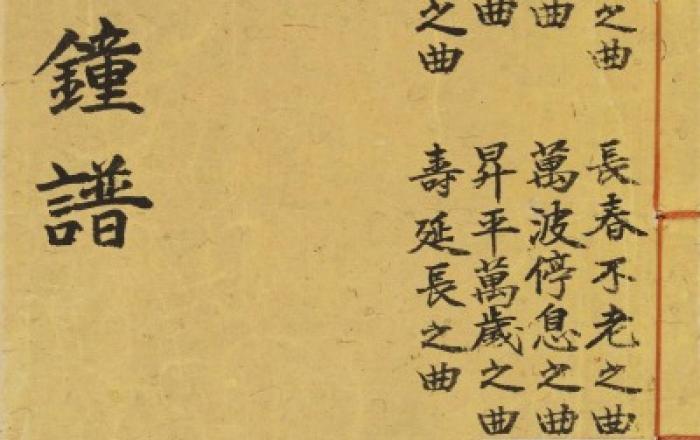 之曲 長春不老之曲
曲 萬波停息之曲
曲 昇平萬歲之曲
之曲 壽延長之曲
鐘譜